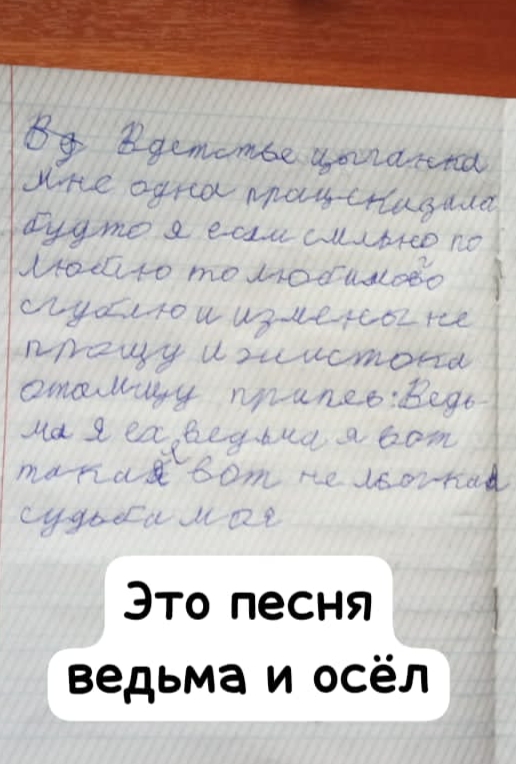 Вд Вдетстве цыганка
мне одна працсказала
будто я если сильно по
люблю то любимово
сгублю и измены не
прощу и жистока
отамщу припев: Ведь-
ма я ех ведьма я вот
такая вот не льогкая
судьба моя
Это песня
ведьма и осёл